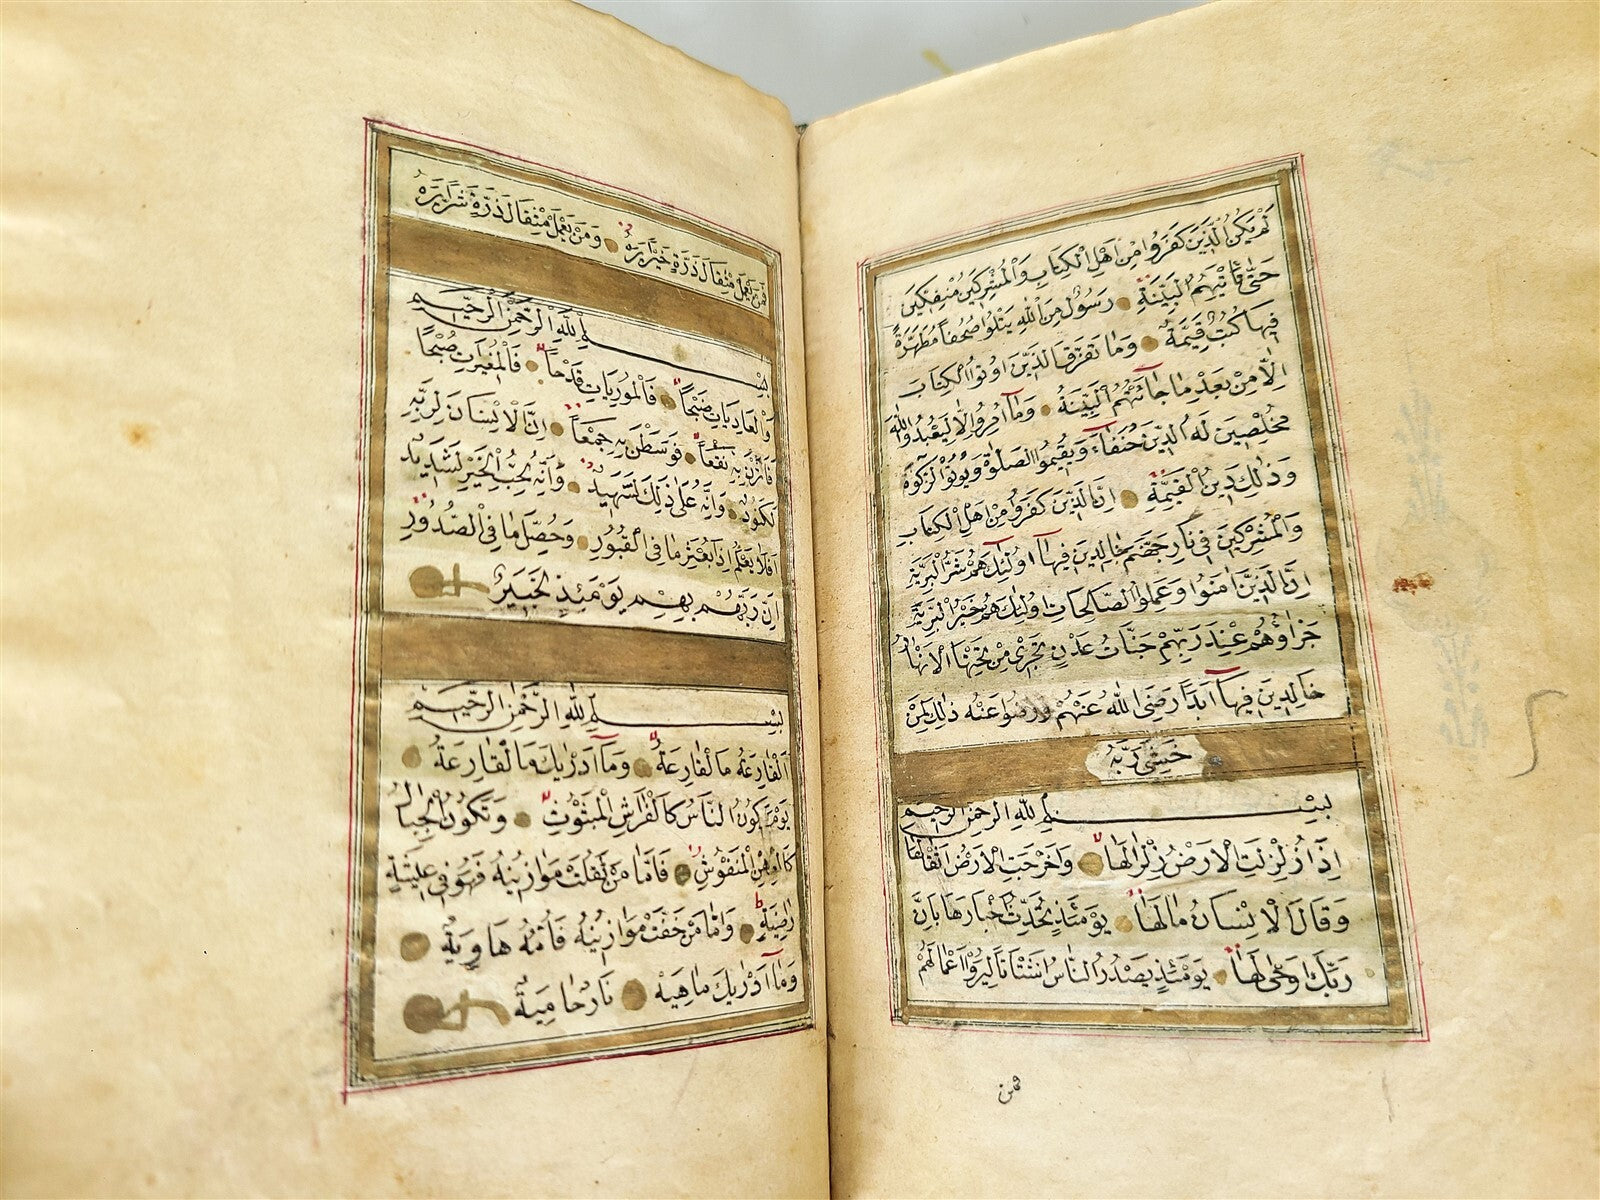 لَمْ يَكُنِ الَّذِينَ كَفَرُوا مِنْ اَهْلِ الْكِتَابِ وَالْمُشْرِكِينَ مُنْفَكِّينَ
حَتّٰى تَأْتِيَهُمُ الْبَيِّنَةُ رَسُولٌ مِنَ اللّٰهِ يَتْلُوا صُحُفاً مُطَهَّرَةً
فِيهَا كُتُبٌ قَيِّمَةٌ وَمَا تَفَرَّقَ الَّذِينَ اُوتُوا الْكِتَابَ
اِلَّا مِنْ بَعْدِ مَا جَاۤءَتْهُمُ الْبَيِّنَةُ وَمَاۤ اُمِرُوۤا اِلَّا لِيَعْبُدُوا اللّٰهَ
مُخْلِصِينَ لَهُ الدِّينَ حُنَفَاۤءَ وَيُقِيمُوا الصَّلٰوةَ وَيُؤْتُوا الزَّكٰوةَ
وَذٰلِكَ دِينُ الْقَيِّمَةِ اِنَّ الَّذِينَ كَفَرُوا مِنْ اَهْلِ الْكِتَابِ
وَالْمُشْرِكِينَ فِي نَارِ جَهَنَّمَ خَالِدِينَ فِيهَاۤ اُولٰۤئِكَ هُمْ شَرُّ الْبَرِيَّةِ
اِنَّ الَّذِينَ اٰمَنُوا وَعَمِلُوا الصَّالِحَاتِ اُولٰۤئِكَ هُمْ خَيْرُ الْبَرِيَّةِ
جَزَاۤؤُهُمْ عِنْدَ رَبِّهِمْ جَنَّاتُ عَدْنٍ تَجْرِي مِنْ تَحْتِهَا الْاَنْهَارُ
خَالِدِينَ فِيهَاۤ اَبَدًا رَضِيَ اللّٰهُ عَنْهُمْ وَرَضُوا عَنْهُ ذٰلِكَ لِمَنْ
خَشِيَ رَبَّهُ
بِسْمِ اللّٰهِ الرَّحْمٰنِ الرَّحِيمِ
اِذَا زُلْزِلَتِ الْاَرْضُ زِلْزَالَهَا وَاَخْرَجَتِ الْاَرْضُ اَثْقَالَهَا
وَقَالَ الْاِنْسَانُ مَا لَهَا يَوْمَئِذٍ تُحَدِّثُ اَخْبَارَهَا بِاَنَّ
رَبَّكَ اَوْحٰى لَهَا يَوْمَئِذٍ يَصْدُرُ النَّاسُ اَشْتَاتًا لِيُرَوْا اَعْمَالَهُمْ
فمن
فَمَنْ يَعْمَلْ مِثْقَالَ ذَرَّةٍ خَيْرًا يَرَهُ وَمَنْ يَعْمَلْ مِثْقَالَ ذَرَّةٍ شَرًّا يَرَهُ
بِسْمِ اللّٰهِ الرَّحْمٰنِ الرَّحِيمِ
وَالْعَادِيَاتِ ضَبْحًا فَالْمُورِيَاتِ قَدْحًا فَالْمُغِيرَاتِ صُبْحًا
فَاَثَرْنَ بِهِ نَقْعًا فَوَسَطْنَ بِهِ جَمْعًا اِنَّ الْاِنْسَانَ لِرَبِّهِ
لَكَنُودٌ وَاِنَّهُ عَلٰى ذٰلِكَ لَشَهِيدٌ وَاِنَّهُ لِحُبِّ الْخَيْرِ لَشَدِيدٌ
اَفَلَا يَعْلَمُ اِذَا بُعْثِرَ مَا فِي الْقُبُورِ وَحُصِّلَ مَا فِي الصُّدُورِ
اِنَّ رَبَّهُمْ بِهِمْ يَوْمَئِذٍ لَخَبِيرٌ
بِسْمِ اللّٰهِ الرَّحْمٰنِ الرَّحِيمِ
اَلْقَارِعَةُ مَا الْقَارِعَةُ وَمَاۤ اَدْرٰيكَ مَا الْقَارِعَةُ
يَوْمَ يَكُونُ النَّاسُ كَالْفَرَاشِ الْمَبْثُوثِ وَتَكُونُ الْجِبَالُ
كَالْعِهْنِ الْمَنْفُوشِ فَاَمَّا مَنْ ثَقُلَتْ مَوَازِينُهُ فَهُوَ فِي عِيشَةٍ
رَاضِيَةٍ وَاَمَّا مَنْ خَفَّتْ مَوَازِينُهُ فَاُمُّهُ هَاوِيَةٌ
وَمَاۤ اَدْرٰيكَ مَا هِيَهْ نَارٌ حَامِيَةٌ